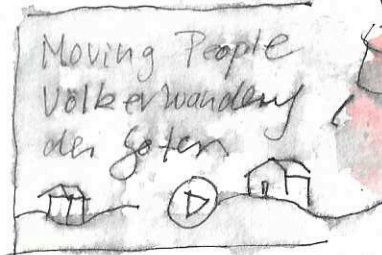 Moving People
Völkerwanderung
der Goten